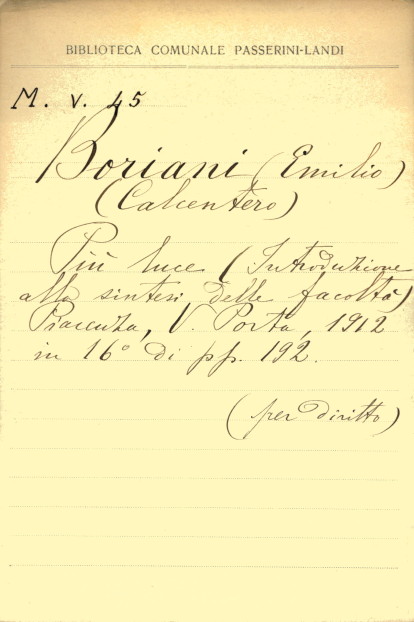 BIBLIOTECA COMUNALE PASSERINI-LANDI
M. v. 45
Boriani (Emilio)
(Calcentero)
Più luce (Introduzione
alla sintesi delle facoltà)
Piacenza, V. Porta, 1912
in 16° di pp. 192.
(per diritto)